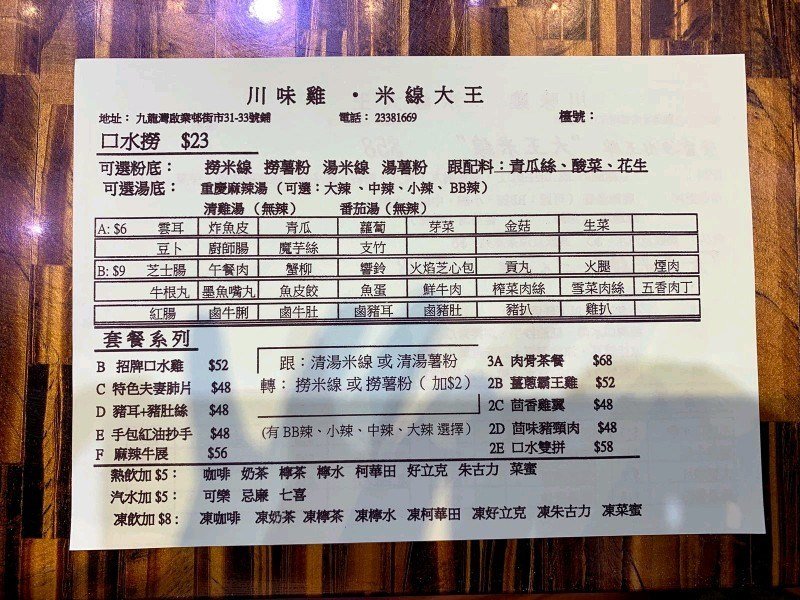 川味雞 · 米線大王
地址： 九龍灣啟業邨街市31-33號舖 電話： 23381669 檯號：
口水撈 $23
可選粉底： 撈米線 撈薯粉 湯米線 湯薯粉 跟配料：青瓜絲、酸菜、花生
可選湯底： 重慶麻辣湯（可選：大辣、中辣、小辣、BB辣）
清雞湯（無辣） 番茄湯（無辣）
A: $6 雲耳 炸魚皮 青瓜 蘿蔔 芽菜 金菇 生菜
豆卜 廚師腸 魔芋絲 支竹
B: $9 芝士腸 午餐肉 蟹柳 響鈴 火焰芝心包 貢丸 火腿 煙肉
牛根丸 墨魚嘴丸 魚皮餃 魚蛋 鮮牛肉 榨菜肉絲 雪菜肉絲 五香肉丁
紅腸 鹵牛脷 鹵牛肚 鹵豬耳 鹵豬肚 豬扒 雞扒
套餐系列
B 招牌口水雞 $52
C 特色夫妻肺片 $48
D 豬耳+豬肚絲 $48
E 手包紅油抄手 $48
F 麻辣牛展 $56
跟：清湯米線 或 清湯薯粉
轉： 撈米線 或 撈薯粉（ 加$2）
(有 BB辣、小辣、中辣、大辣 選擇)
3A 肉骨茶餐 $68
2B 薑蔥霸王雞 $52
2C 茴香雞翼 $48
2D 茴味豬頸肉 $48
2E 口水雙拼 $58
熱飲加 $5： 咖啡 奶茶 檸茶 檸水 柯華田 好立克 朱古力 菜蜜
汽水加 $5： 可樂 忌廉 七喜
凍飲加 $8： 凍咖啡 凍奶茶 凍檸茶 凍檸水 凍柯華田 凍好立克 凍朱古力 凍菜蜜